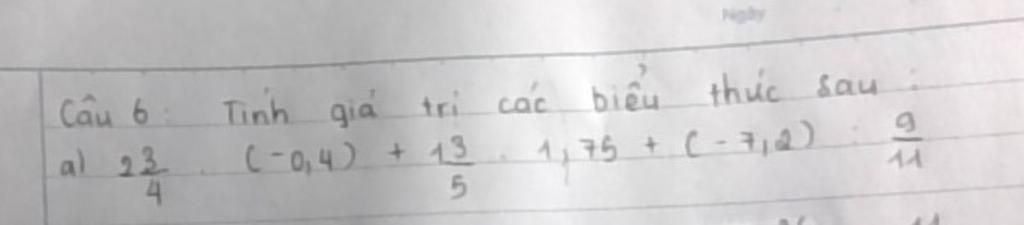 Ngày
Câu 6: Tính giá trị các biểu thức sau:
a) 2 3/4 . (-0,4) + 1 3/5 . 1,75 + (-7,2) : 9/11